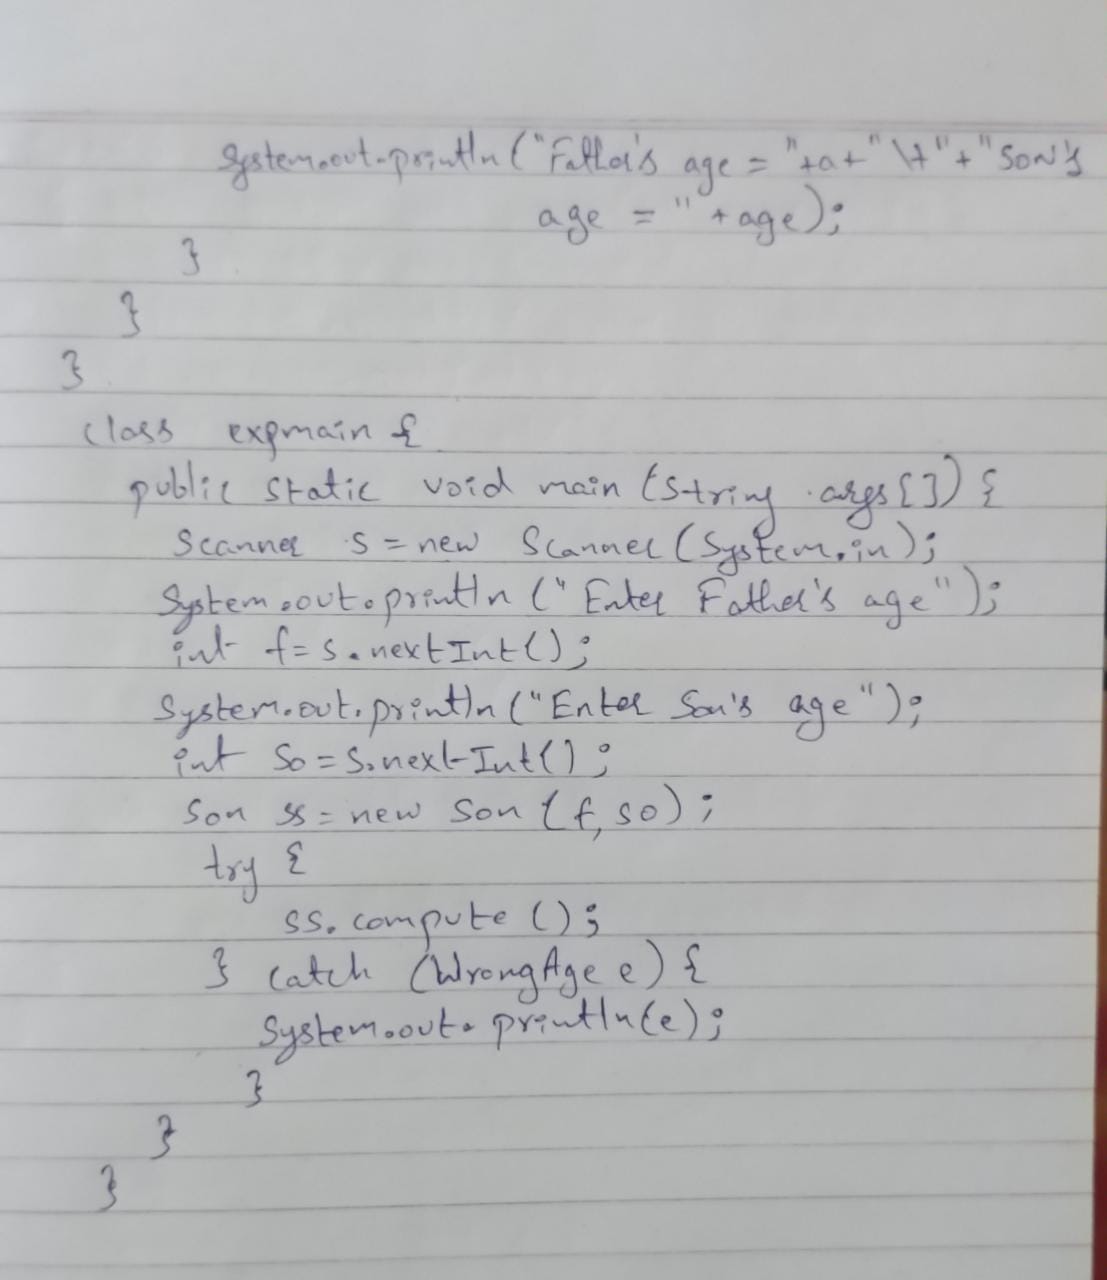 System.out.println ("Father's age = "+a+" \t"+"Son's
age = " + age);
}
}
}
class expmain {
public static void main (String args []) {
Scanner s = new Scanner (System.in);
System.out.println (" Enter Father's age");
int f = s.nextInt();
System.out.println ("Enter Son's age");
int so = s.nextInt();
Son ss = new Son (f, so);
try {
ss.compute ();
} catch (WrongAge e) {
System.out.println(e);
}
}
}